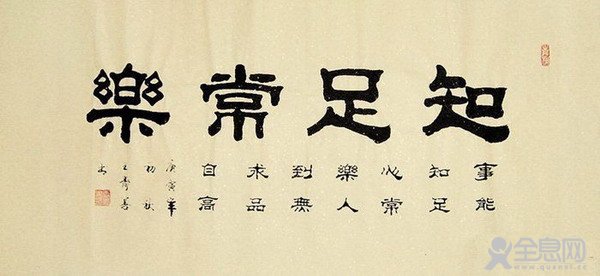 知足常樂
事能
知足
心常
樂人
到無
求品
自高
庚寅年
初秋
全息网
www.quanxi.cc